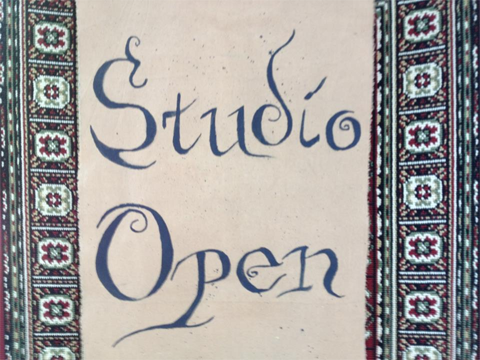 Studio
Open